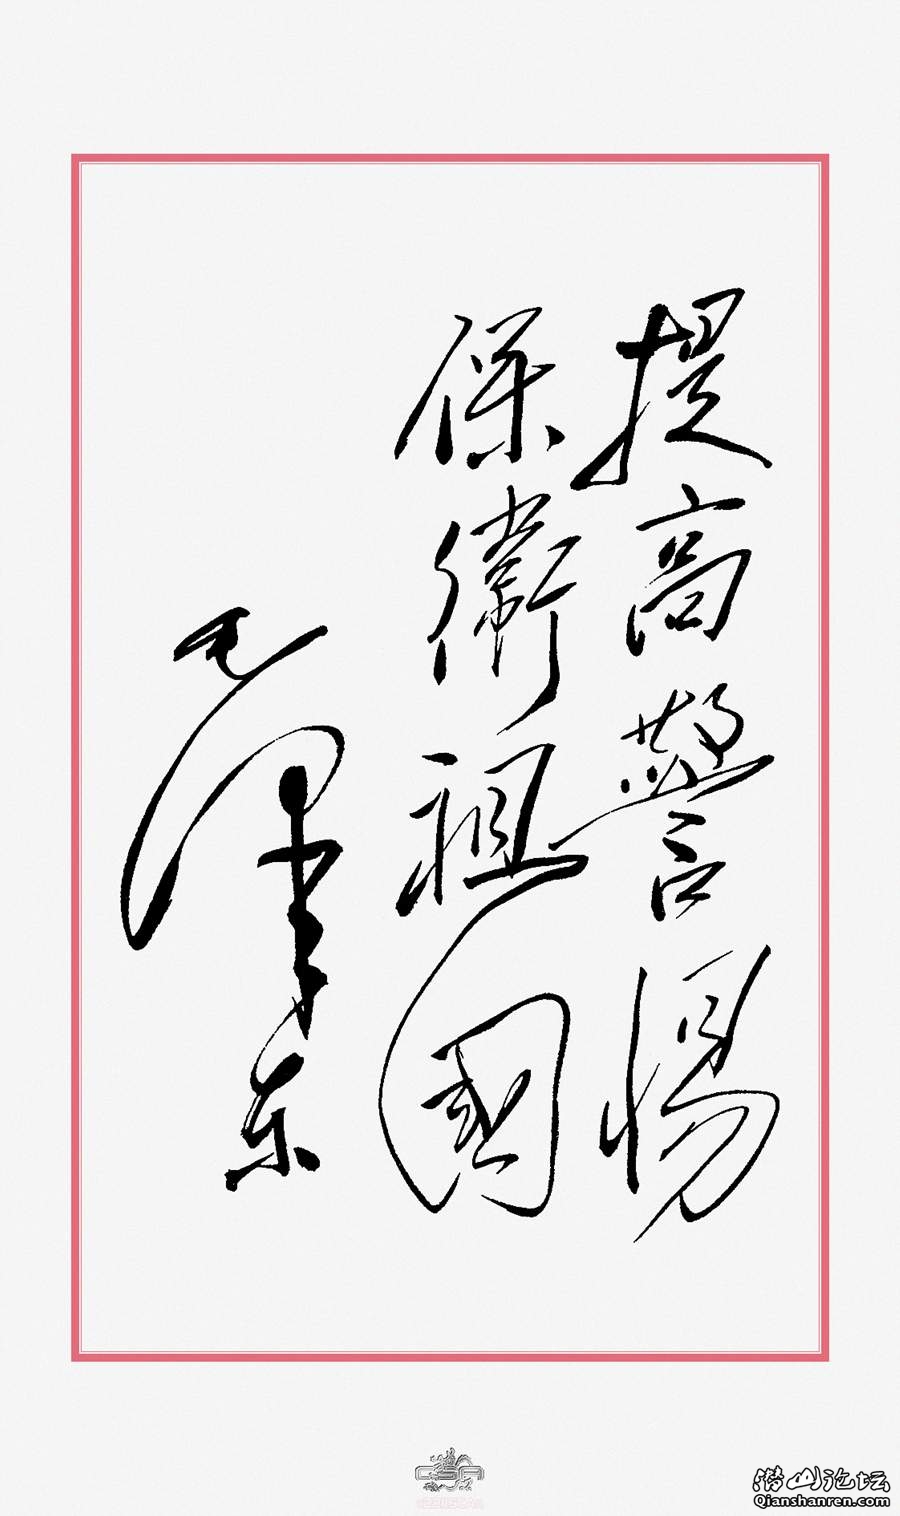 提高警惕
保衛祖國
毛泽东
CSA
潜山论坛
Qianshanren.com